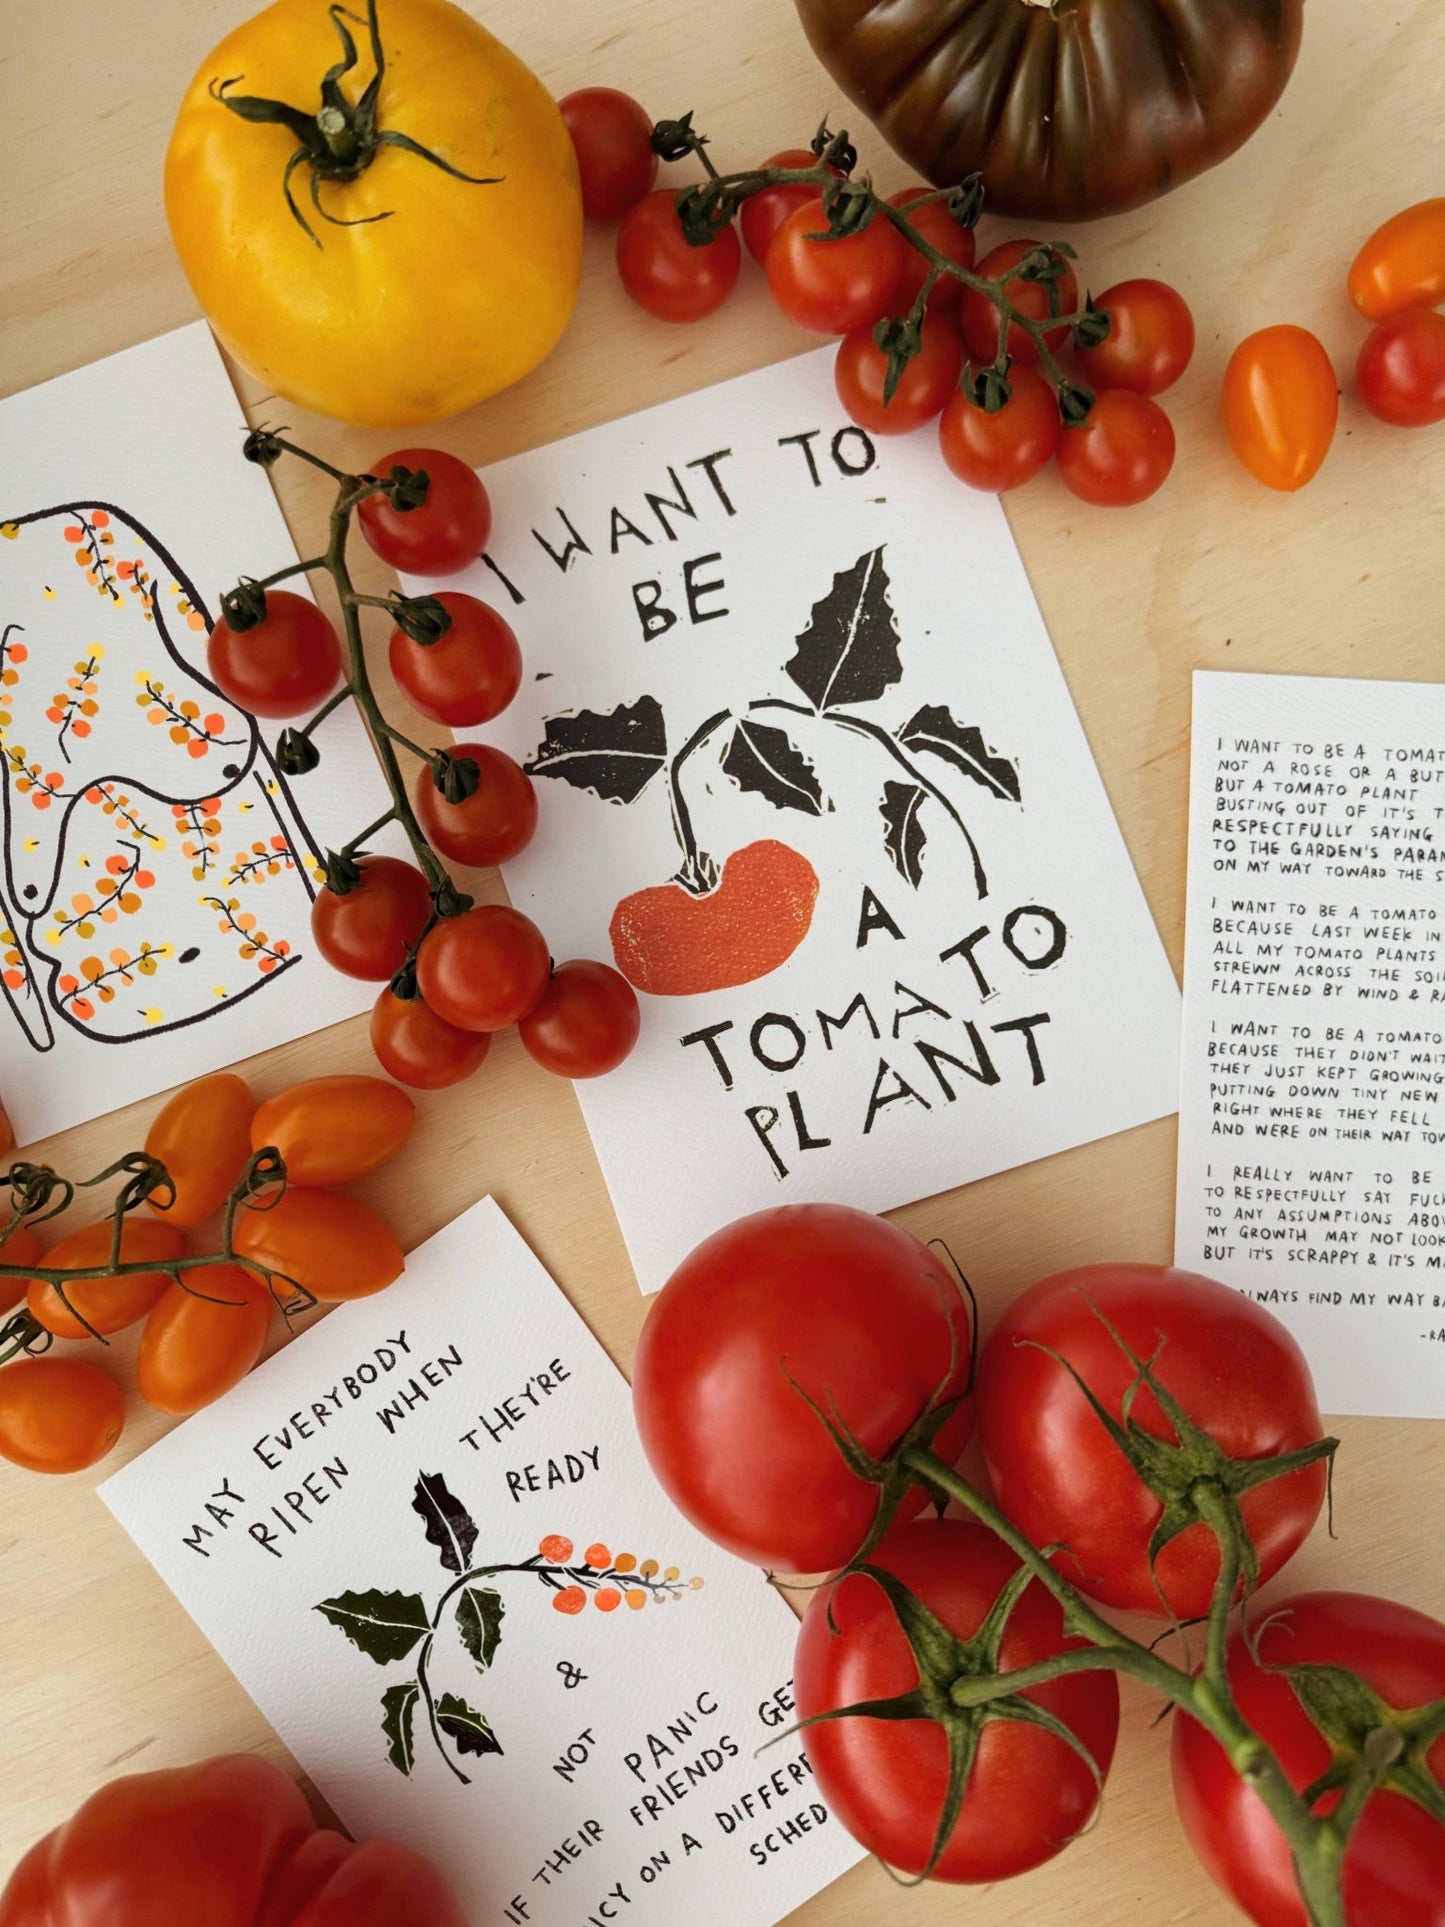 I WANT TO
BE
A
TOMATO
PLANT
I WANT TO BE A TOMAT
NOT A ROSE OR A BUT
BUT A TOMATO PLANT
BUSTING OUT OF IT'S T
RESPECTFULLY SAYING
TO THE GARDEN'S PARAM
ON MY WAY TOWARD THE S
I WANT TO BE A TOMATO
BECAUSE LAST WEEK IN
ALL MY TOMATO PLANTS
STREWN ACROSS THE SOI
FLATTENED BY WIND & RA
I WANT TO BE A TOMATO
BECAUSE THEY DIDN'T WAIT
THEY JUST KEPT GROWING
PUTTING DOWN TINY NEW
RIGHT WHERE THEY FELL
AND WERE ON THEIR WAY TOW
I REALLY WANT TO BE
TO RESPECTFULLY SAY FUCK
TO ANY ASSUMPTIONS ABO
MY GROWTH MAY NOT LOOK
BUT IT'S SCRAPPY & IT'S M
ALWAYS FIND MY WAY BA
-RA
MAY EVERYBODY
RIPEN WHEN
THEY'RE
READY
&
NOT
PANIC
IF THEIR FRIENDS GET
ICY ON A DIFFER
SCHED